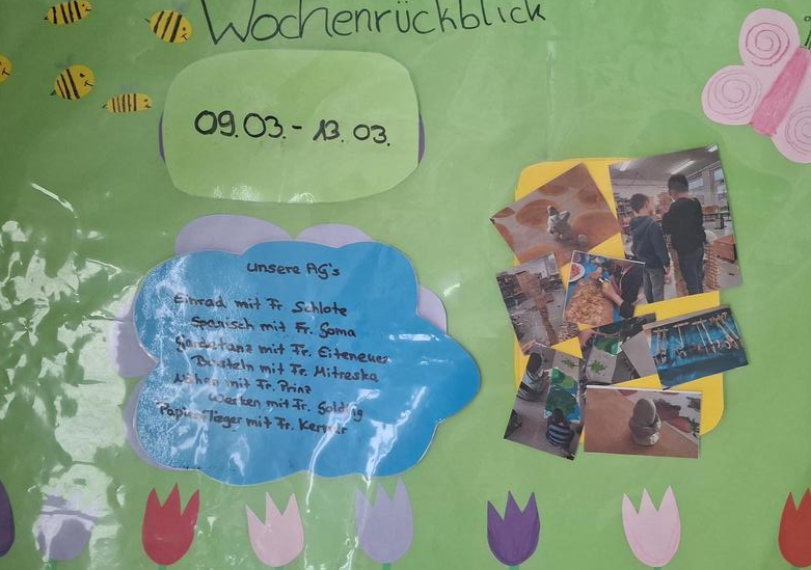 Wochenrückblick
09.03.- 13.03.
unsere AG's
Einrad mit Fr Schlote
Spanisch mit Fr. Soma
mit Fr. Eiteneuer
Basteln mit Fr. Mitreska
Nähen mit Fr. Prinz
Werken mit Fr. Golding
Papierflieger mit Fr.